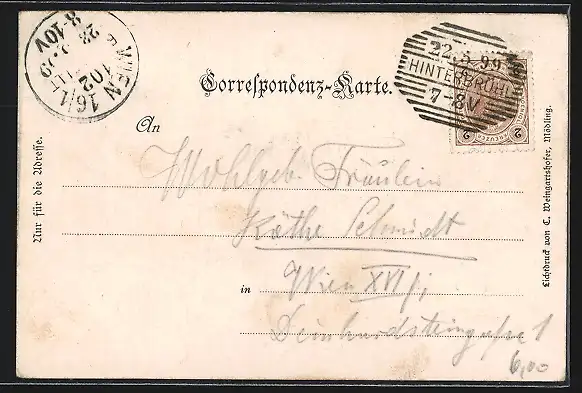 WIEN 16/1
102
23.5.99
8-10V
22.5.99
HINTERBRÜHL
7-8V
2 KREUZER 2
Correspondenz-Karte.
An
Wohlgeb. Fräulein
Käthe Schmidt
in Wien XVI/1
1
6,00
Nur für die Adresse.
Lichtdruck von C. Weingartshofer, Mödling.